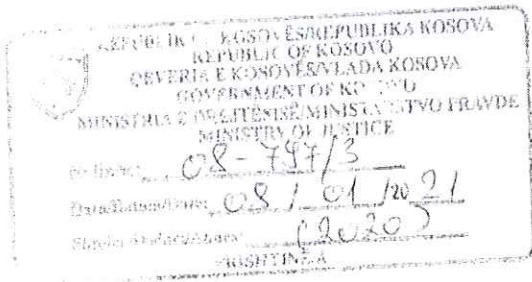 REPUBLIKA E KOSOVËS/REPUBLIKA KOSOVA
REPUBLIC OF KOSOVO
QEVERIA E KOSOVËS/VLADA KOSOVA
GOVERNMENT OF KOSOVO
MINISTRIA E DREJTËSISË/MINISTARSTVO PRAVDE
MINISTRY OF JUSTICE
08-797/3
Data/Datum/Date: 08/01/2021
(2020)
PRISHTINË/A